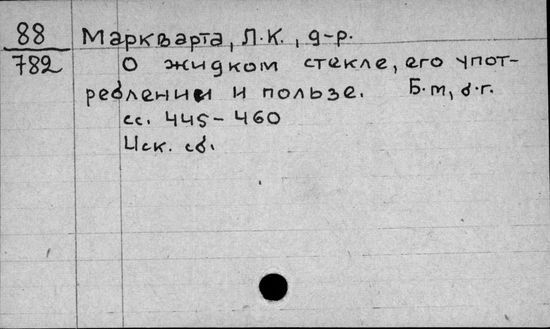 88 Маркварта, Л.К., д-р.
782 О жидком стекле, его упот-
реблении и пользе. Б.м, б.г.
сс. 445-460
Иск. сб.